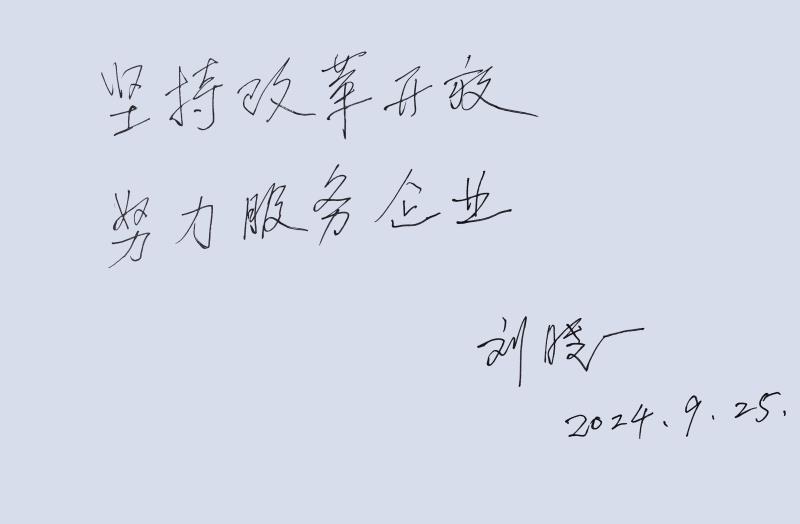 坚持改革开放
努力服务企业
刘晓一
2024.9.25.